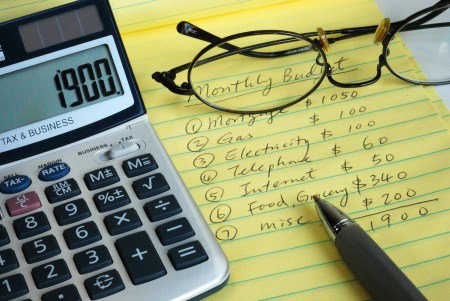 1900.
TAX & BUSINESS
BUSINESS TAX
SELL MARGIN
TAX RATE M=
COST
CM
SM %± M-
8 9 ÷ √
5 6 ×
Monthly Budget
① Mortgage $ 1050
② Gas $ 100
③ Electricity $ 100
④ Telephone $ 60
⑤ Internet $ 50
⑥ Food, Grocery $ 340
⑦ misc $ 200
1900